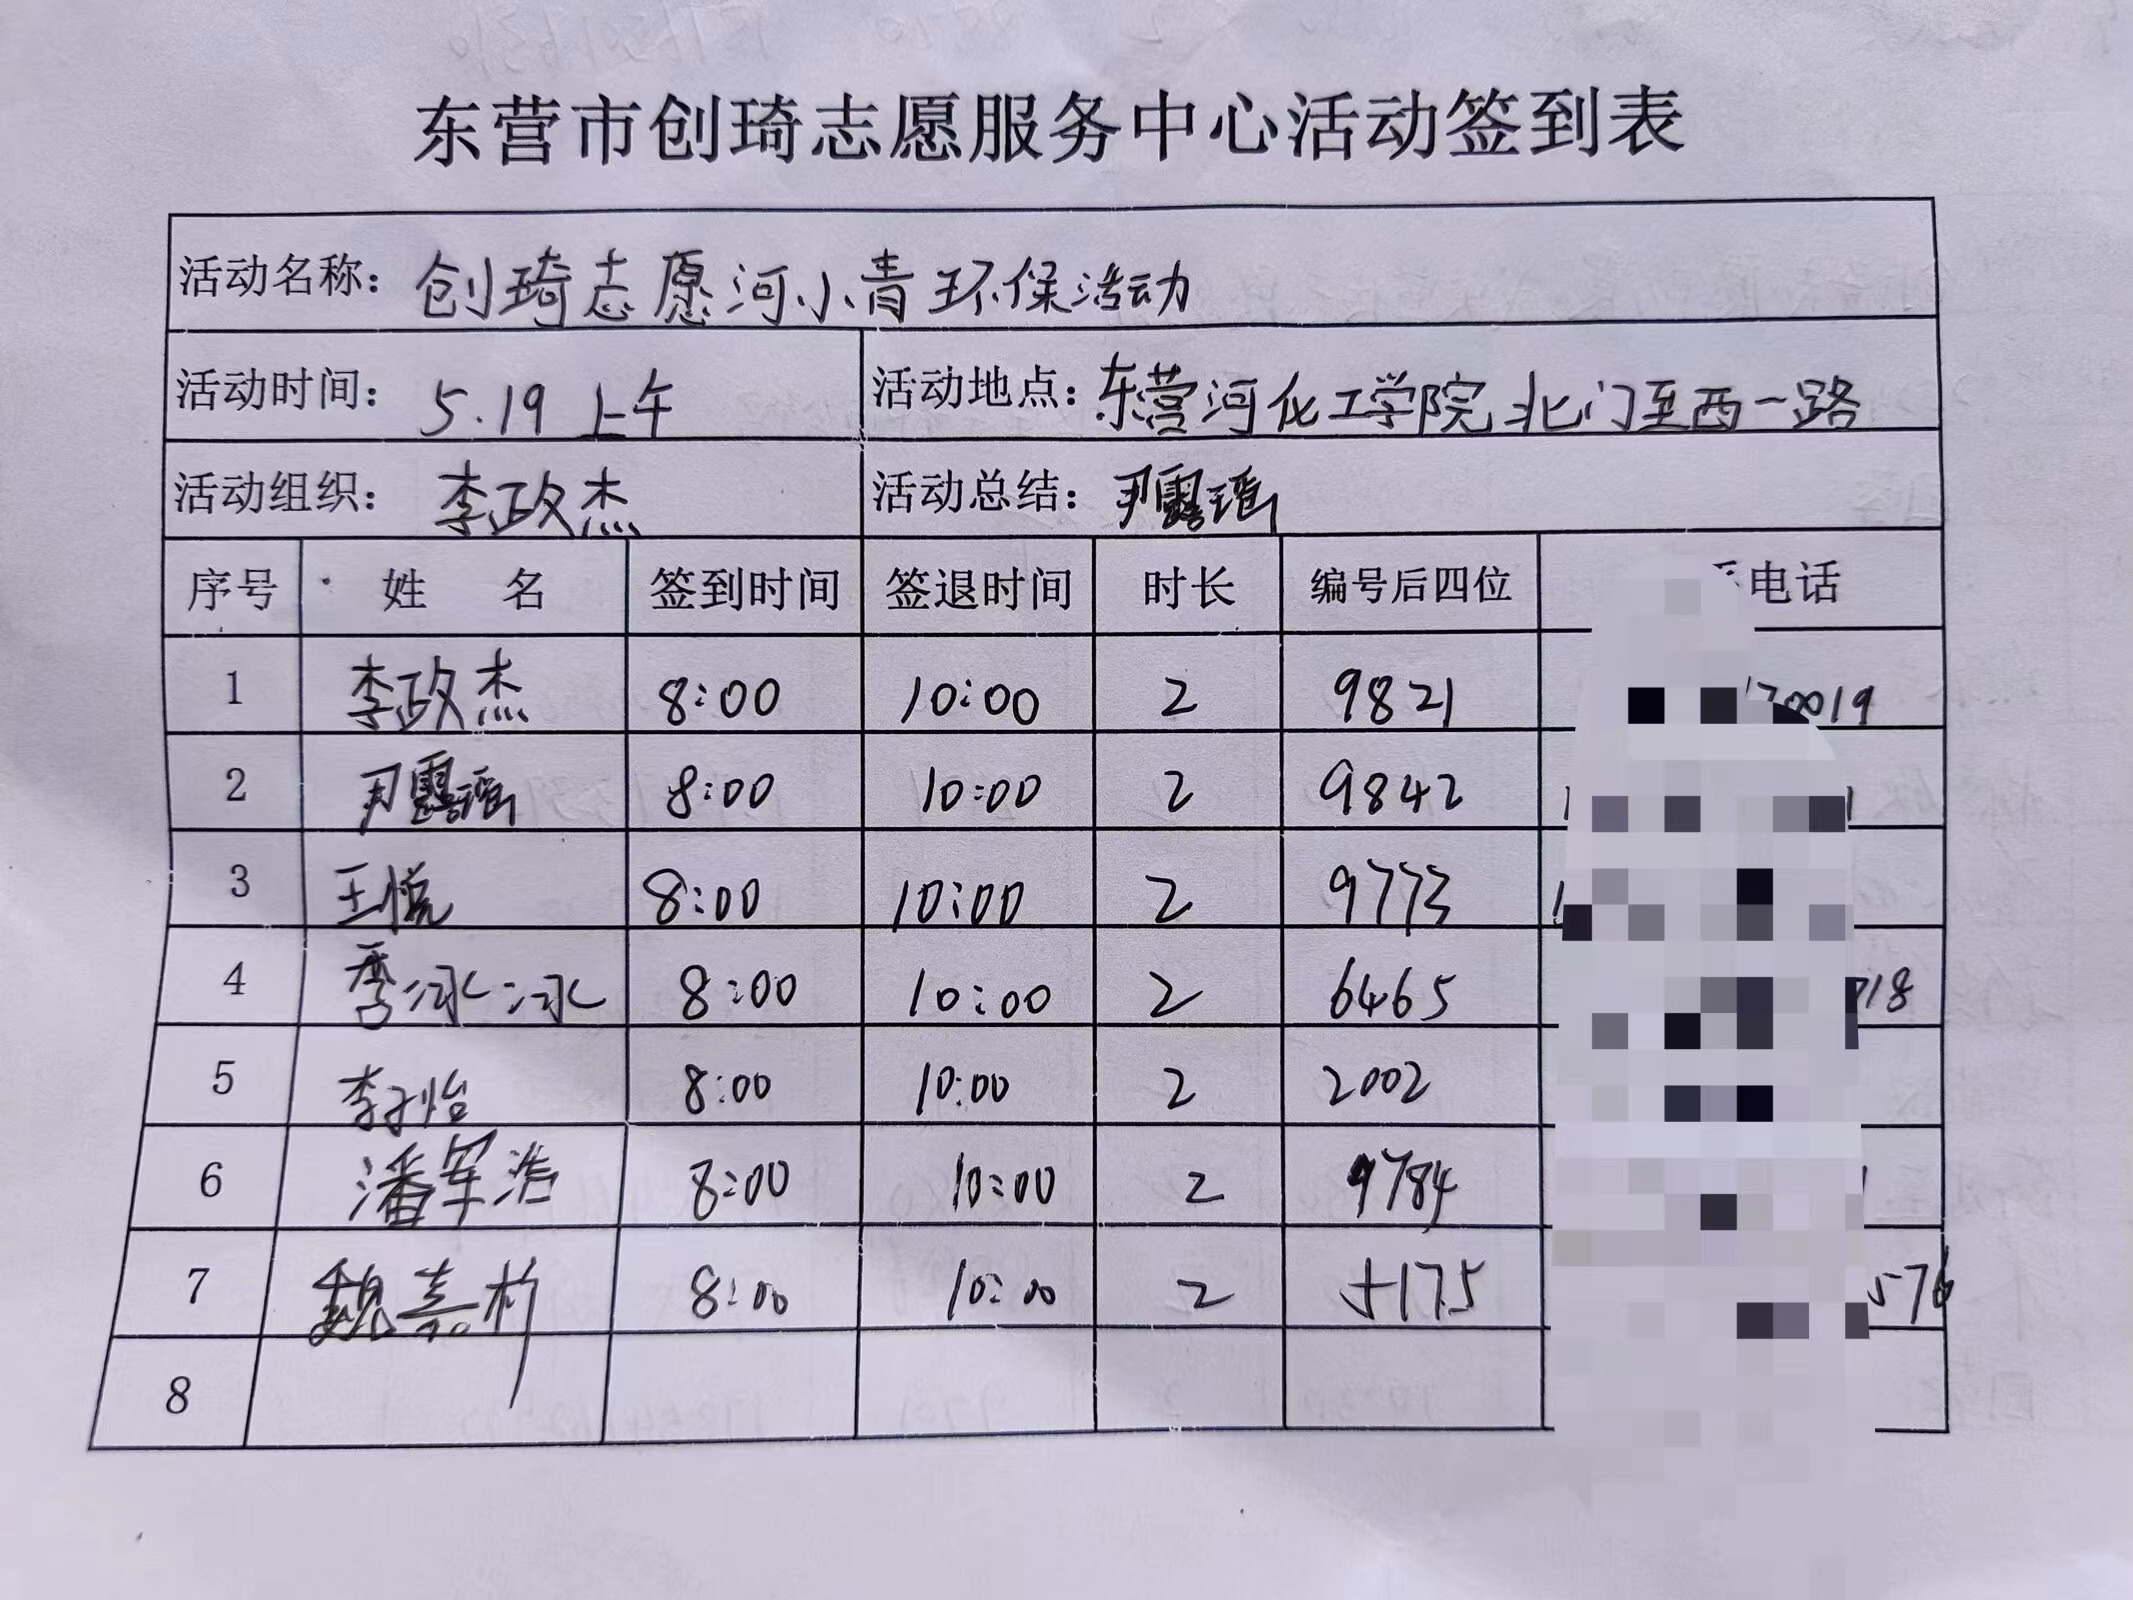 东营市创琦志愿服务中心活动签到表
活动名称：创琦志愿河小青环保活动
活动时间：5.19 上午 活动地点：东营河化工学院北门至西一路
活动组织：李政杰 活动总结：尹露瑶
序号 姓 名 签到时间 签退时间 时长 编号后四位 电话
1 李政杰 8:00 10:00 2 9821 0019
2 尹露瑶 8:00 10:00 2 9842
3 王悦 8:00 10:00 2 9773
4 季冰冰 8:00 10:00 2 6465 718
5 李子怡 8:00 10:00 2 2002
6 潘军浩 8:00 10:00 2 9784
7 魏嘉 8:00 10:00 2 5175 576
8